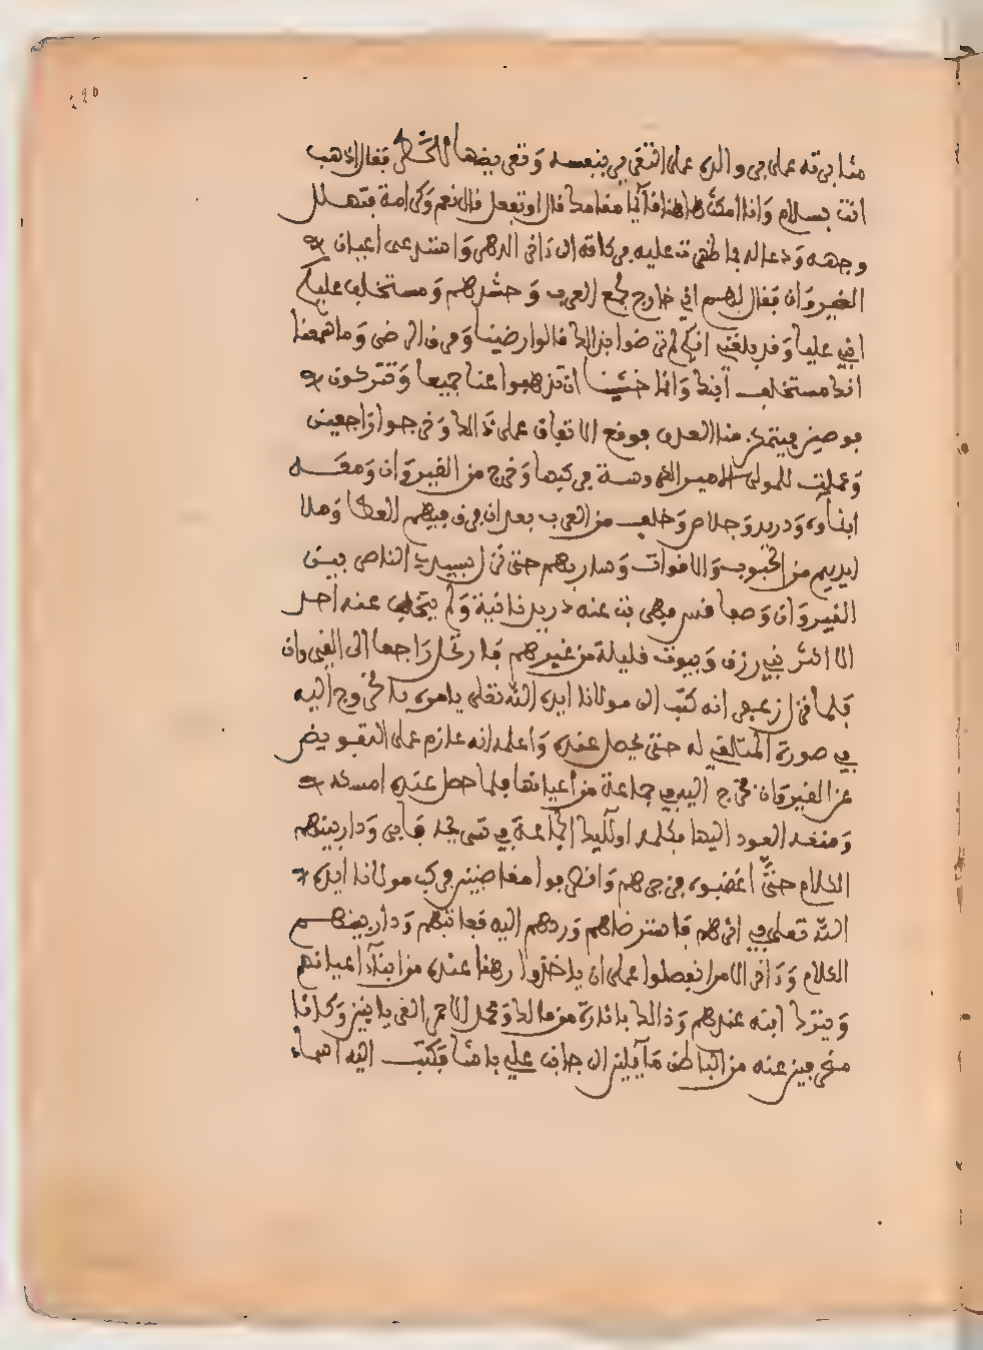 على والده على التغرير بنفسه وتعريضها للخطر فقال اذهب
انت بسلام وانا امكث هاهنا قائما مقامك قال اوتفعل قال نعم وكرامة فتهلل
وجهه ودعا له بما ظهرت عليه بركاته الى داخر الدهر واستدعى اعيان
القيروان فقال لهم اني خارج لجمع العرب وحشدهم ومستخلف عليكم
ابني عليا وقد بلغني انكم لم ترضوا بذلك قالوا رضينا وفوق الرضى وما سمعنا
انك مستخلف ابنك وانما خشينا ان تذهبوا عنا جميعا وتتركون
منا العدو فوقع الاتفاق على ذالك وخرجوا راجعين
وعملت للمولى الامير فركبها وخرج من القيروان ومعه
ابناؤه ودريد وجلاص وخلف من العرب بعد ان فرق فيهم العطا وملا
ايديهم من الحبوب والاقوات وسار بهم حتى نزل بسيدي الناصر بين
القيروان وصفاقس فهربت عنه دريد ثانية ولم يتخلف عنه احد
الا اكثر بني رزق وبيوت قليلة من غيرهم فارتحل راجعا الى القيروان
فلما نزل زعم انه كتب الى مولانا ايده الله تعلى يامره بالخروج اليه
في صورة المتلقي له حتى يحصل عنده واعلمه انه عازم على التفويض
عن القيروان فخرج اليه في جماعة من اعيانها فلما حصل عنده امسكه
ومنعه العود اليها فكلمه اولئيك الجماعة في تسريحه فابى ودار بينهم
الكلام حتى اغضبوه فزجرهم وانصرفوا مغاضبين فركب مولانا ايده
الله تعلى في اثرهم فاسترضاهم وردهم اليه فعاتبهم ودار بينهم
الكلام وداخر الامر انفصلوا على ان ياخذوا رهنا عنده من ابناء اعيانهم
ويترك ابنه عندهم وذالك باشارة من مالك ومحمد الاحمر الغريانيين وكانا
منحرفين عنه من الباطن مآيلين الى جانب علي باشا فكتب اليه اسماء